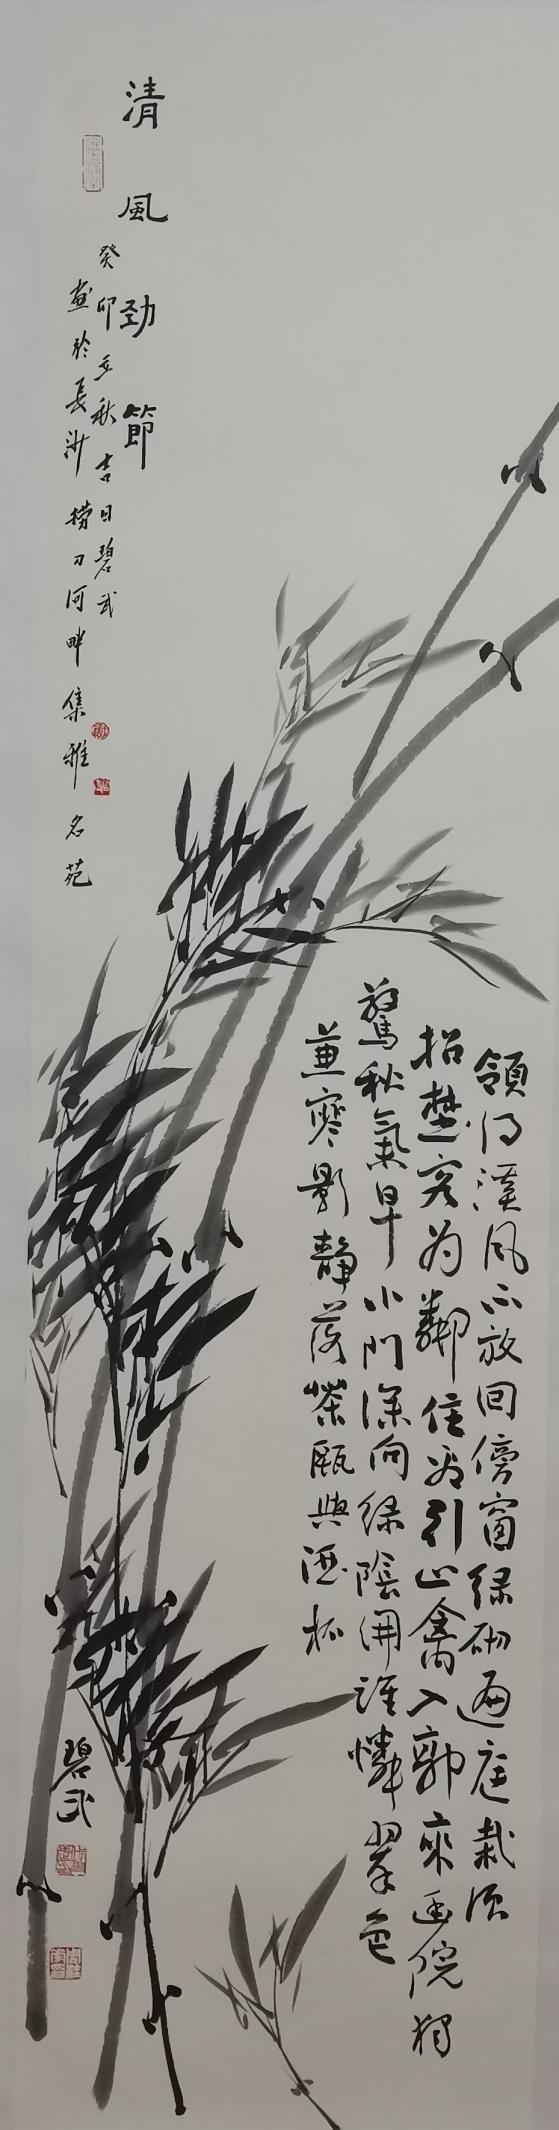 清風劲節
癸卯立秋吉日碧武
畫於長沙撈刀河畔集雅名苑
領得溪风不放回傍窗緑砌遍庭栽須
招埜客为鄰住看引山禽入郭來幽院獨
驚秋氣早小门深向绿陰開誰憐翠色
兼寒影靜落茶甌與酒杯
碧武